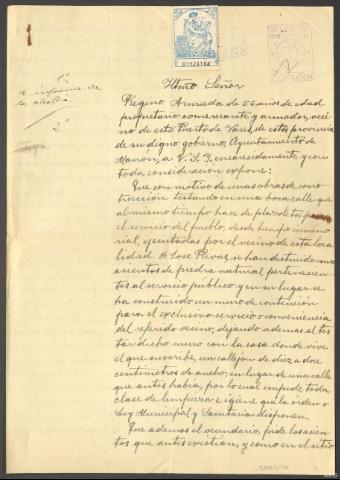 B1524184
Iltmo Señor
1º
A informe de
la alcaldía.
2º
Regino Armada de 56 años de edad
propietario comerciante y armador, veci
no de este Puerto de Vares, de esta provincia
de su digno gobierno, Ayuntamiento de
Manon, a V. S. I. encarecidamente y con
toda consideracion expone:
Que con motivo de unas obras de cons-
trucción testando en una boca calle que
al mismo tiempo hace de plazoleta para
el servicio del pueblo, desde tiempo inmemo
rial, ejecutadas por el vecino de esta loca
lidad D. Jose Rivas, se han destruido unos
asientos de piedra natural pertenecien
tes al servicio publico y en su lugar se
ha construido un muro de contención
para el exclusivo servicio o conveniencia
del referido vecino; dejando ademas al tes
tar dicho muro con la casa donde vive
el que suscribe, un callejon de diez a doce
centimetros de ancho, en lugar de una calle
que antes habia, por lo cual impide toda
clase de limpieza e igiene que la órden o
Ley Municipal y Sanitaria disponen.
Que ademas el vecindario, pide los asien
tos que antes existian, y como en el sitio